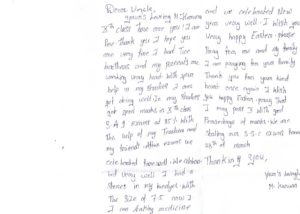 Dear Uncle,
your's Loving M. Kumara
X th class love over you I am
fine thank you I hope you
are very fine I had two
brothers and my parents are
working very hard with your
help in my studies I am
got doing well in my studies
got good marks in X th class
S.A.1 exams at 85% with
the help of my Teachers and
my friends. After exams we
celebrated
but very well I had a
stones in my kindyes with
the size of 7.5 now I
am taking medicine
and we celebrated New
year very well I wish you
very happy Easter. please
pray for me and my family
I am praying for your family
Thank you for your kind
heart once again I wish
you happy Easter. pray that
I may pass X with good
Percentage of marks. We are
starting our S.S.C exams from
of march
Thanking you,
your's lovingly
M. Kumara